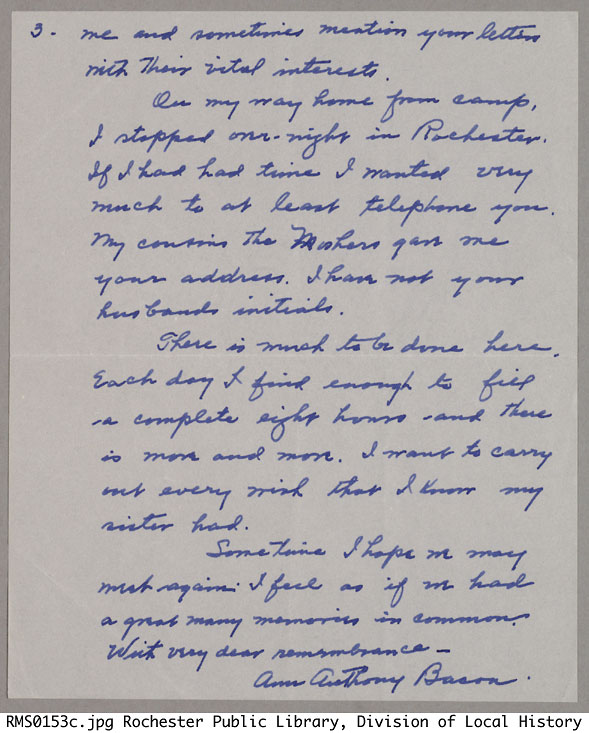 3 - me and sometimes mention your letters
with their vital interests.
On my way home from camp,
I stopped over-night in Rochester.
If I had had time I wanted very
much to at least telephone you.
My cousins the Moshers gave me
your address. I have not your
husbands initials.
There is much to be done here.
Each day I find enough to fill
a complete eight hours and there
is more and more. I want to carry
out every wish that I know my
sister had.
Sometime I hope we may
meet again. I feel as if we had
a great many memories in common.
With very dear remembrance -
Ann Anthony Bacon.
RMS0153c.jpg Rochester Public Library, Division of Local History